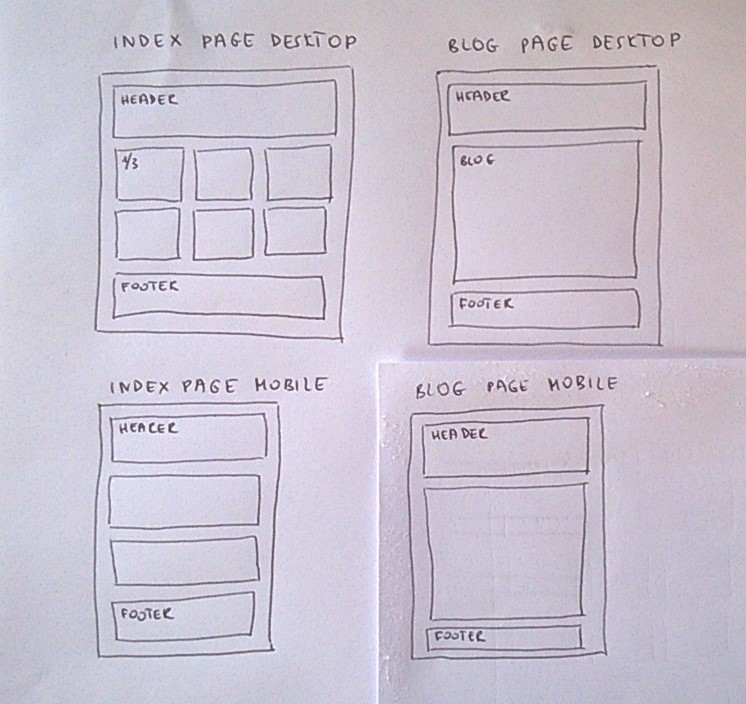 INDEX PAGE DESKTOP
HEADER
1/3
FOOTER
BLOG PAGE DESKTOP
HEADER
BLOG
FOOTER
INDEX PAGE MOBILE
HEACER
FOOTER
BLOG PAGE MOBILE
HEADER
FOOTER